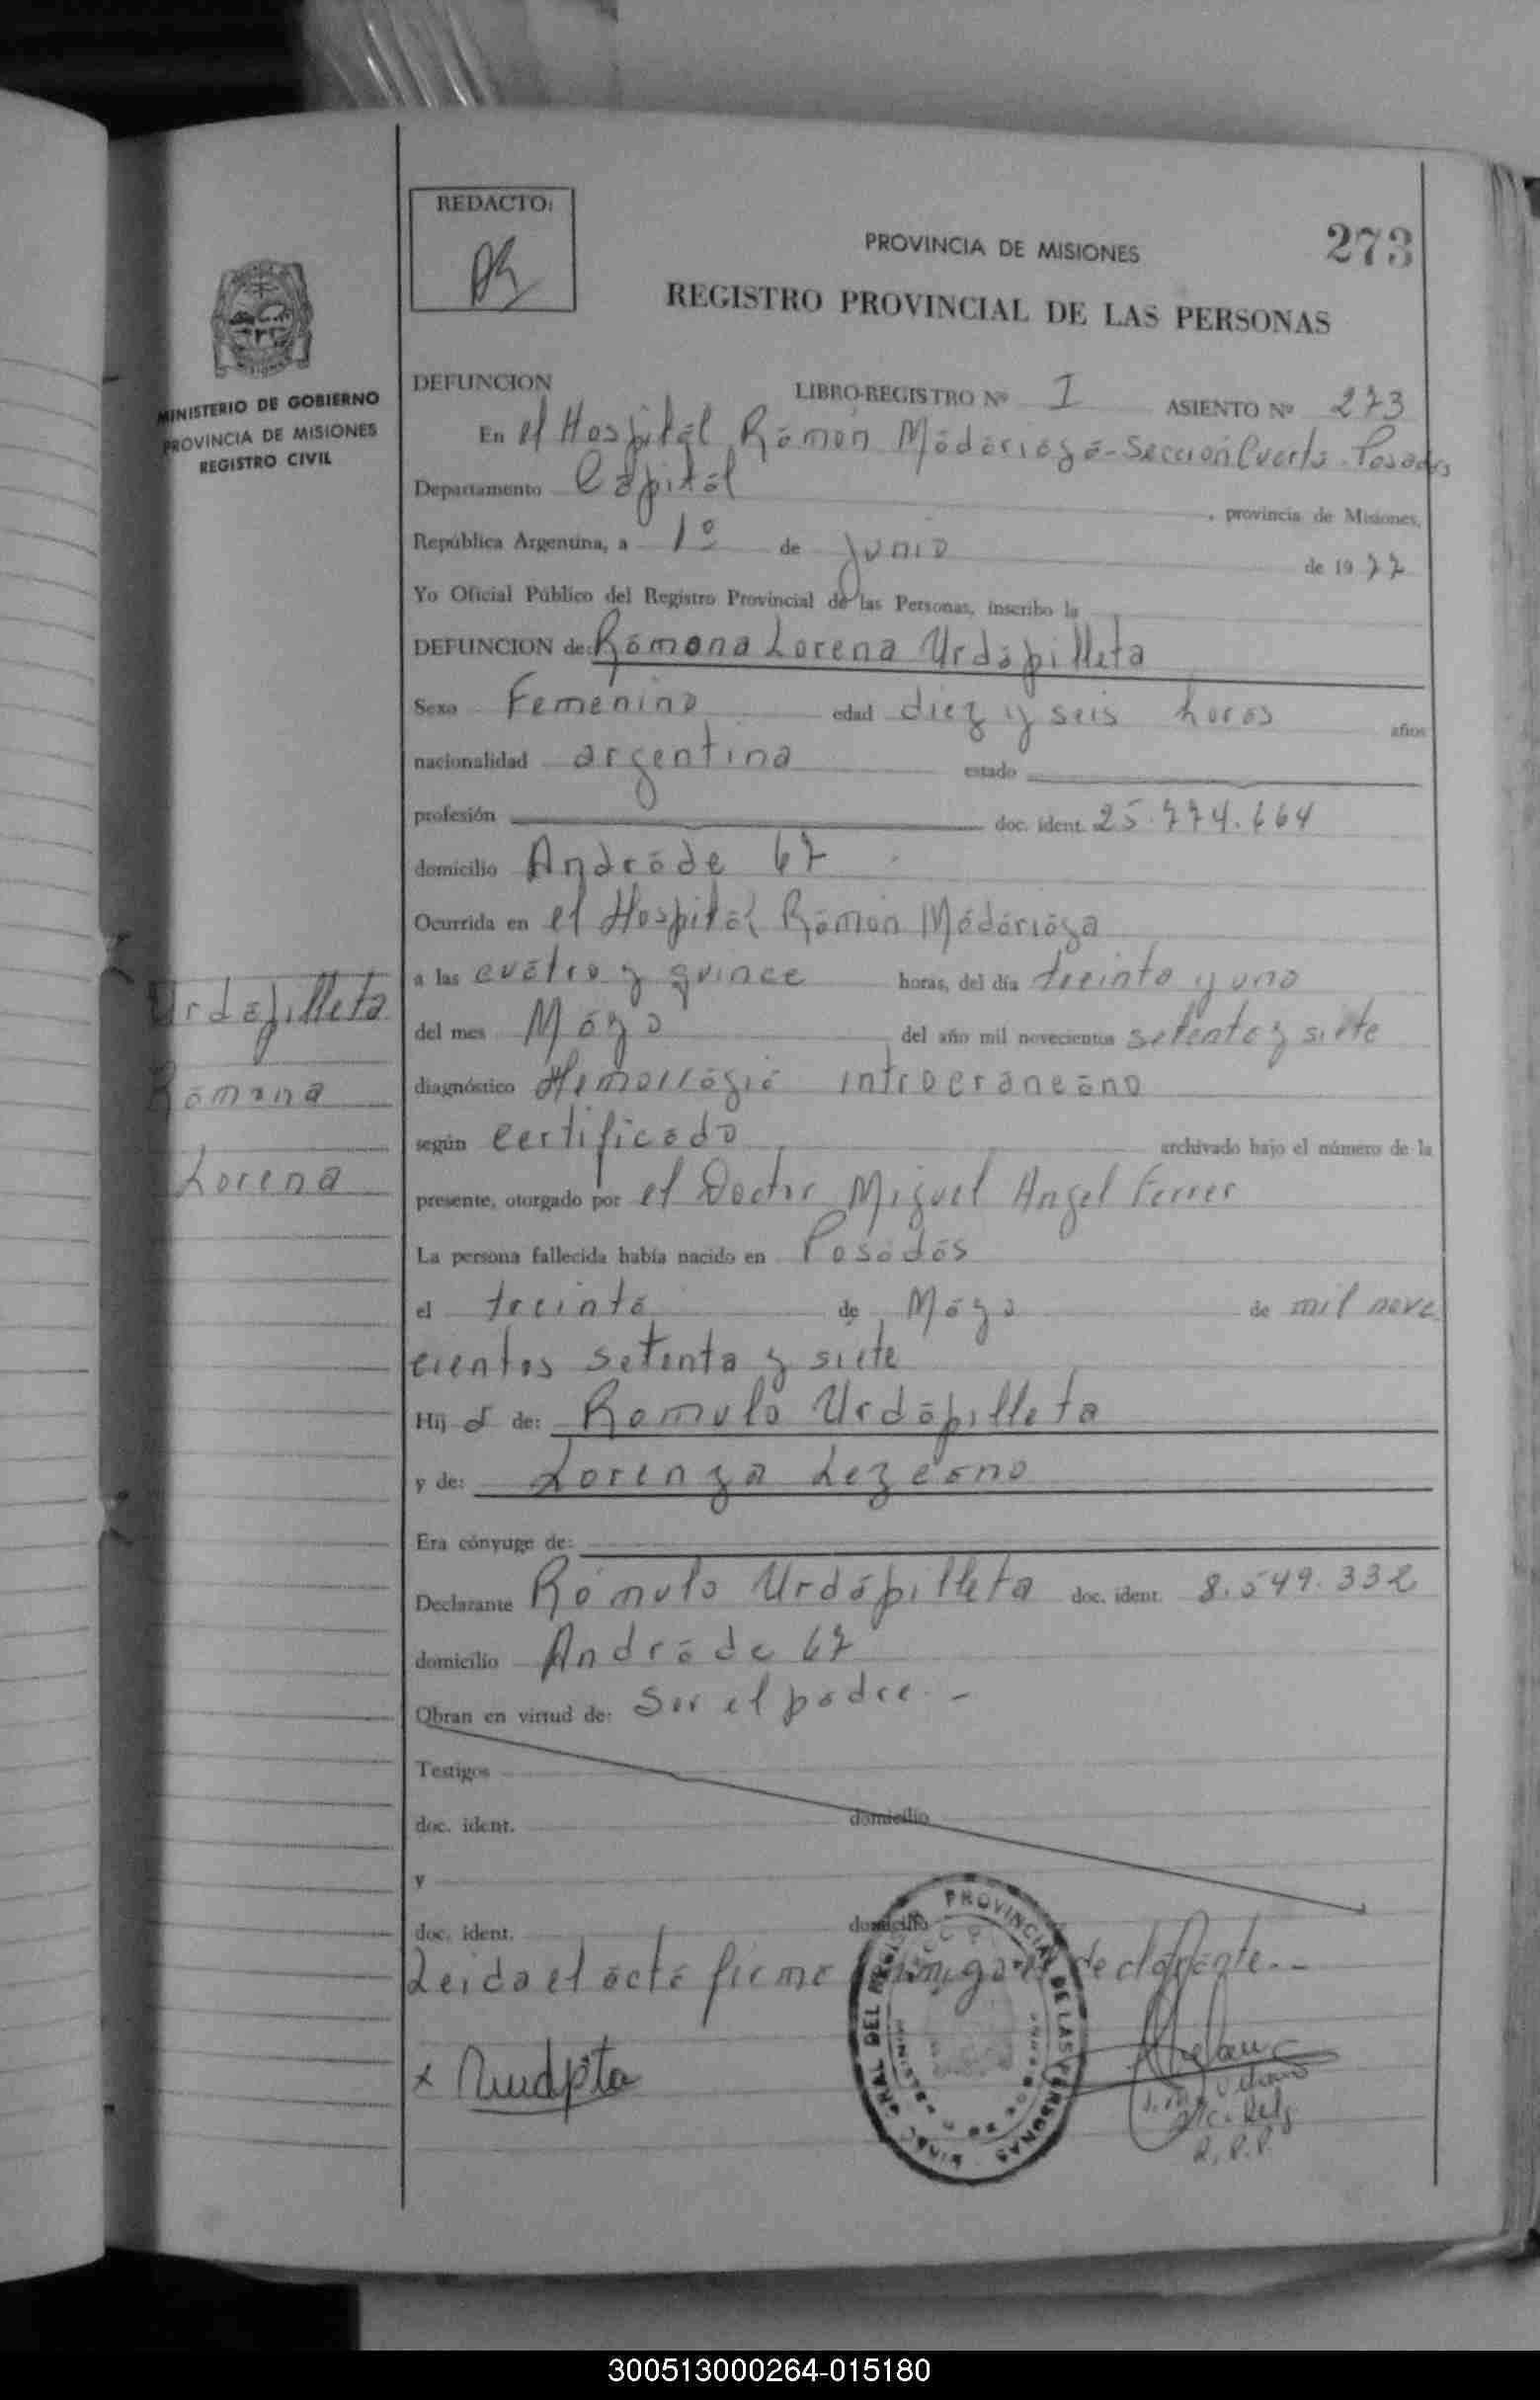 REDACTO:
PROVINCIA DE MISIONES
273
REGISTRO PROVINCIAL DE LAS PERSONAS
MINISTERIO DE GOBIERNO
PROVINCIA DE MISIONES
REGISTRO CIVIL
DEFUNCION LIBRO-REGISTRO Nº I ASIENTO Nº 273
En el Hospital Ramón Madariaga - Sección Cuarta - Posadas
Departamento Capital , provincia de Misiones,
República Argentina, a 1º de Junio de 1977
Yo Oficial Público del Registro Provincial de las Personas, inscribo la
DEFUNCION de: Ramona Lorena Urdapilleta
Sexo Femenino edad diez y seis horas años
nacionalidad argentina estado
profesión doc. ident. 25.774.664
domicilio Andrade 67
Ocurrida en el Hospital Ramón Madariaga
a las cuatro y quince horas, del día treinta y uno
del mes Mayo del año mil novecientos setenta y siete
diagnóstico Hemorragia intracraneana
según certificado archivado bajo el número de la
presente, otorgado por el Doctor Miguel Angel Ferrer
La persona fallecida había nacido en Posadas
el treinta de Mayo de mil nove
cientos setenta y siete
Hij a de: Romulo Urdapilleta
y de: Lorenza Lezcano
Era cónyuge de:
Declarante Rómulo Urdapilleta doc. ident. 8.549.332
domicilio Andrade 67
Obran en virtud de: Ser el padre. -
Testigos
doc. ident. domicilio
y
doc. ident. domicilio
Leida el acta firma conmigo el declarante. -
Urdapilleta
Ramona
Lorena
PROVINCIAL DE LAS PERSONAS
GRAL DEL REGIS
R.P.P.
300513000264-015180